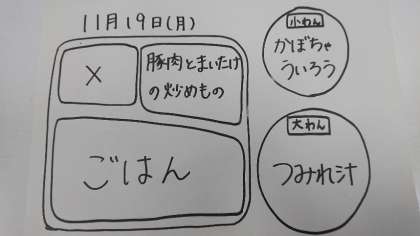 11月19日(月)
X
豚肉とまいたけ
の炒めもの
ごはん
小わん
かぼちゃ
ういろう
大わん
つみれ汁